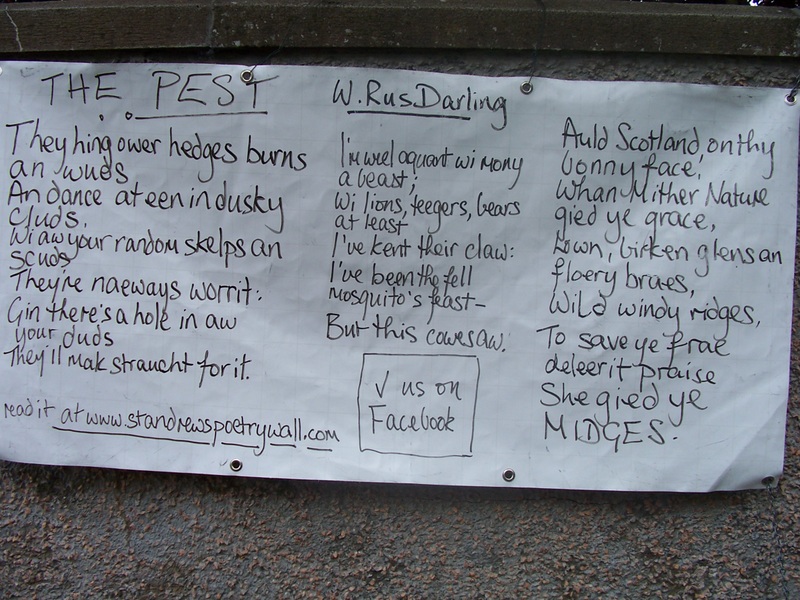 THE PEST
W. Rus Darling
They hing ower hedges burns
an wuds
An dance at een in dusky
cluds.
Wi aw your random skelps an
scuds
They're naeways worrit:
Gin there's a hole in aw
your duds
They'll mak straucht for it.
read it at www.standrewspoetrywall.com
I'm weel aquant wi mony
a beast;
Wi lions, teegers, bears
at least
I've kent their claw:
I've been the fell
mosquito's feast—
But this cowes aw.
√ us on
Facebook
Auld Scotland, on thy
bonny face,
Whan Mither Nature
gied ye grace,
Lown, birken glens an
floery braes,
Wild windy ridges,
To save ye frae
deleerit praise
She gied ye
MIDGES.